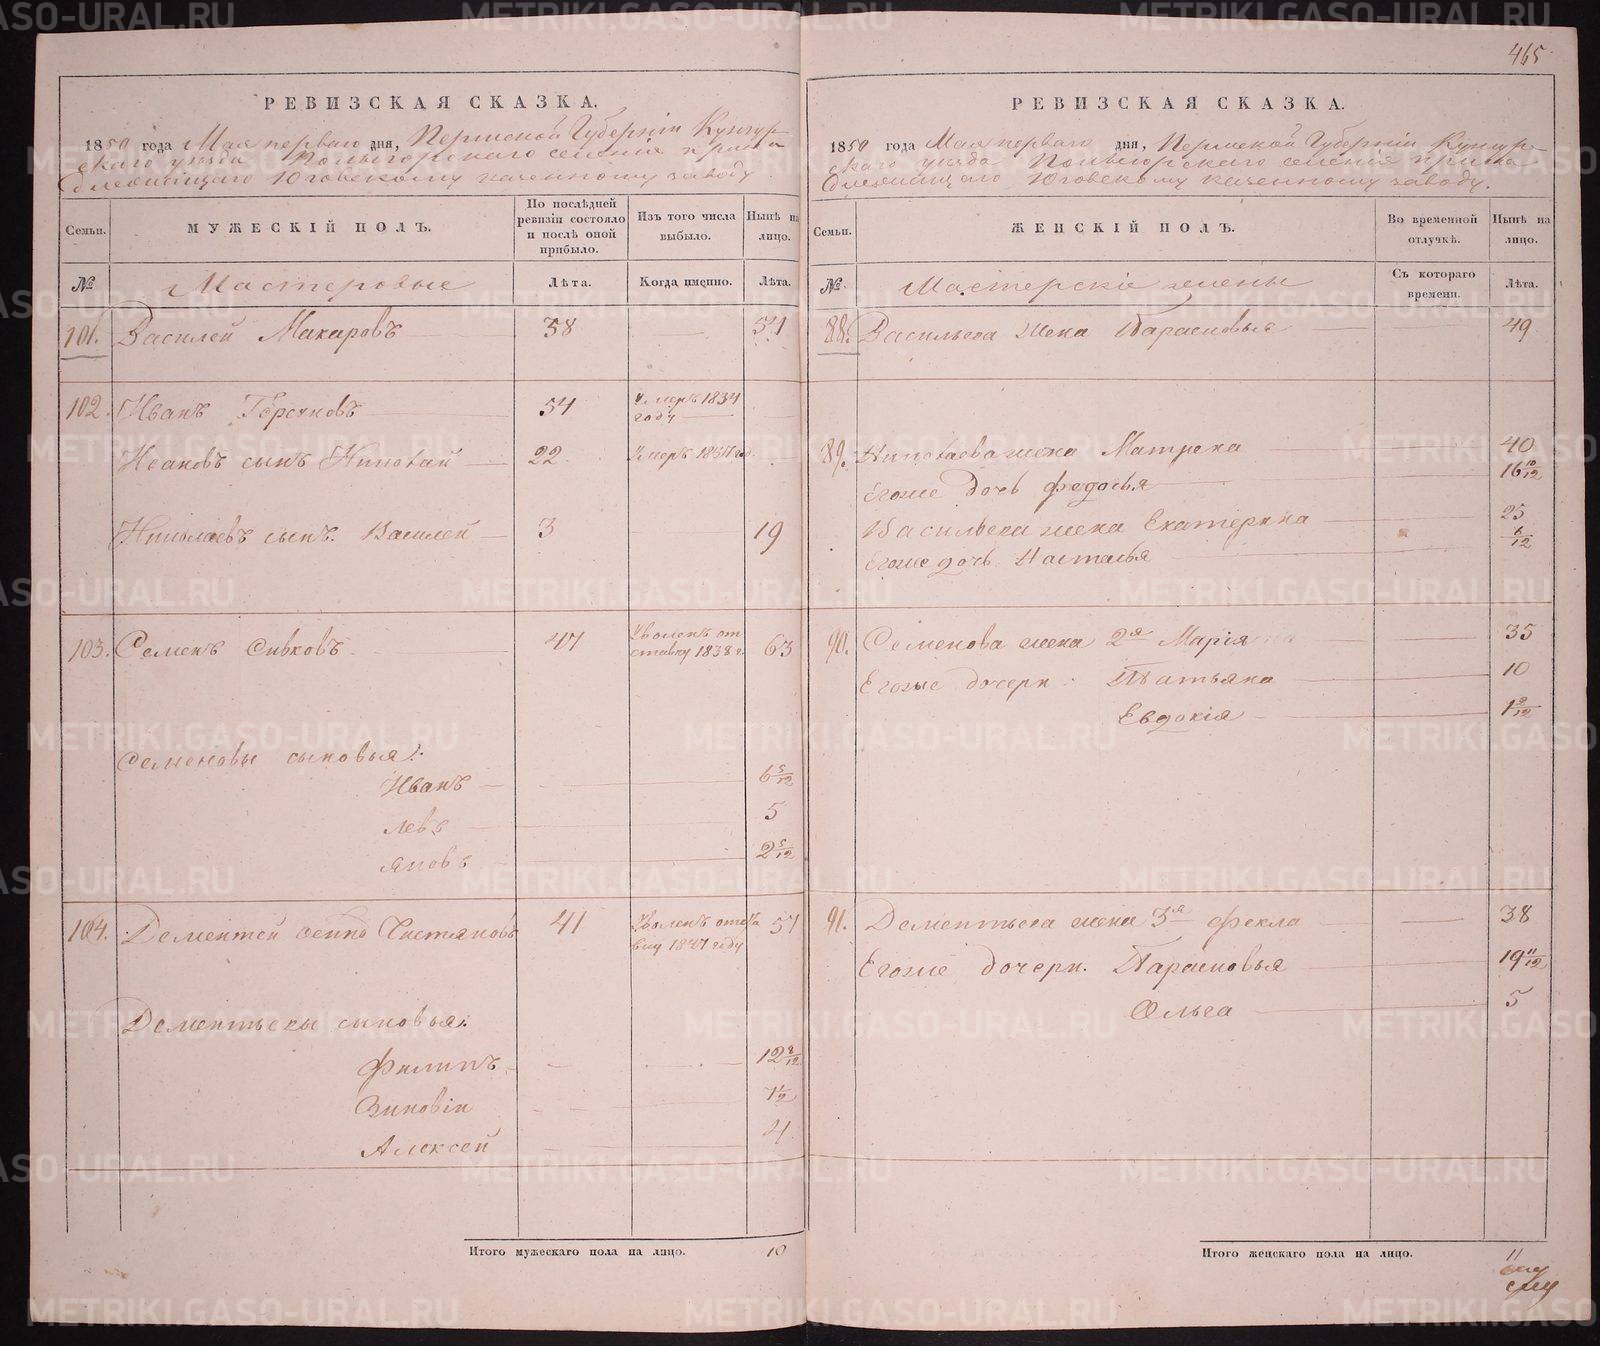 465
РЕВИЗСКАЯ СКАЗКА.
1850 года Мая перваго дня, Пермской Губерніи Кунгур-
скаго уезда селенія прина
длежащаго Юговскому казенному заводу
Семьи.
МУЖЕСКІЙ ПОЛЪ.
По послѣдней ревизіи состояло и послѣ оной прибыло.
Изъ того числа выбыло.
Нынѣ на лицо.
№ Мастеровые Лѣта. Когда именно. Лѣта.
101. Василей Макаровъ 38 54
102. Иванъ 54 Умеръ 1834 году
Ивановъ сынъ Николай 22 Умеръ
Николаевъ сынъ Василей 3 19
103. Семенъ Сивковъ 47 Уволенъ от ставку 1838 г. 63
Семеновы сыновья:
Иванъ 6 5/12
Левъ 5
Яковъ 2 5/12
104. Дементей 41 Уволенъ отста вку 1847 году 57
Дементьевы сыновья:
Филипъ 12
Зиновій 7 1/2
Алексей 4
Итого мужескаго пола на лицо. 10
РЕВИЗСКАЯ СКАЗКА.
1850 года Мая перваго дня, Пермской Губерніи Кунгур-
скаго уезда селенія прина
длежащаго Юговскому казенному заводу.
Семьи.
ЖЕНСКІЙ ПОЛЪ.
Во временной отлучкѣ.
Нынѣ на лицо.
№ Мастерскіе жены Съ котораго времени. Лѣта.
88. Васильева жена Парасковья 49
89. Николаева жена Матрена 40
Егоже дочь Федосья 16 10/12
Васильева жена Екатерина 25
Егоже дочь Настасья 6/12
90. Семенова жена 2я Марія 35
Егоже дочери: Татьяна 10
Евдокія 1
91. Дементьева жена 3я Фекла 38
Егоже дочери. Парасковья 19 11/12
Ольга 5
Итого женскаго пола на лицо. 11
METRIKI.GASO-URAL.RU